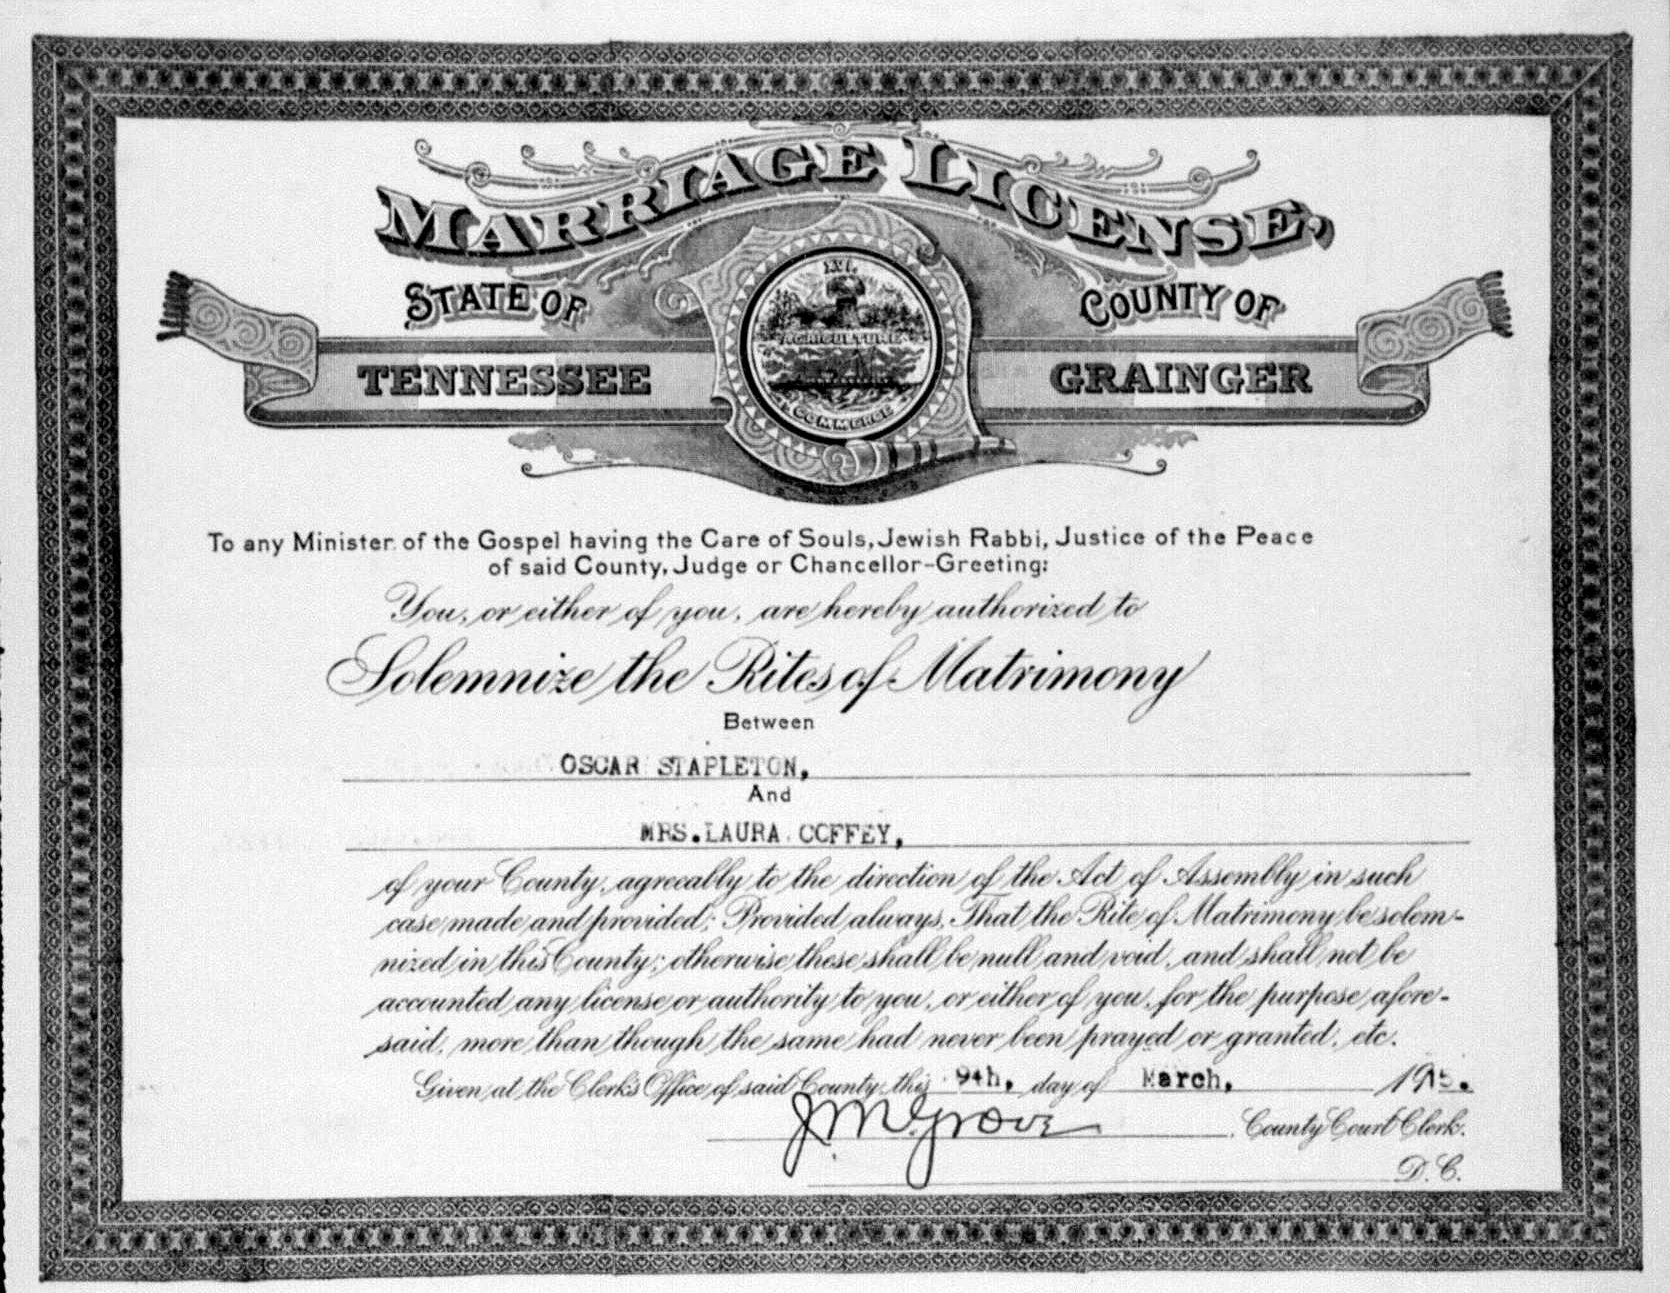 MARRIAGE LICENSE,
STATE OF
COUNTY OF
TENNESSEE
GRAINGER
XVI.
AGRICULTURE
COMMERCE
To any Minister of the Gospel having the Care of Souls, Jewish Rabbi, Justice of the Peace
of said County, Judge or Chancellor-Greeting:
You, or either of you, are hereby authorized to
Solemnize the Rites of Matrimony
Between
OSCAR STAPLETON,
And
MRS. LAURA COFFEY,
of your County, agreeably to the direction of the Act of Assembly in such
case made and provided; Provided always, That the Rite of Matrimony be solem-
nized in this County; otherwise these shall be null and void, and shall not be
accounted any license or authority to you, or either of you, for the purpose afore-
said, more than though the same had never been prayed or granted, etc.
Given at the Clerk's Office of said County, this 9th, day of March, 1915.
J M Grove County Court Clerk.
D. C.